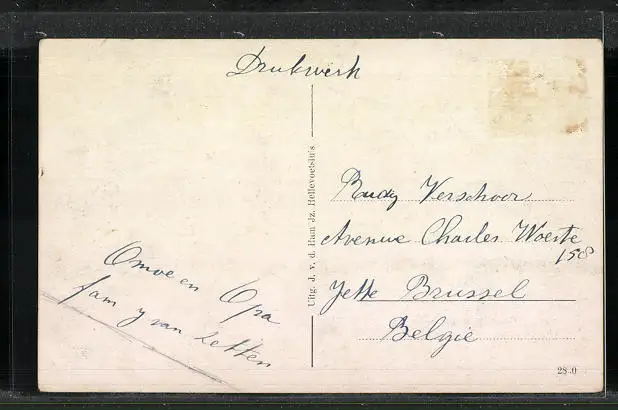 Drukwerk
Uitg. J. v. d. Ham Jz. Hellevoetsluis
Rudy Verschoor
Avenue Charles Woeste
158
Jette Brussel
België
Omoe en Opa
fam J van Letten
28.0